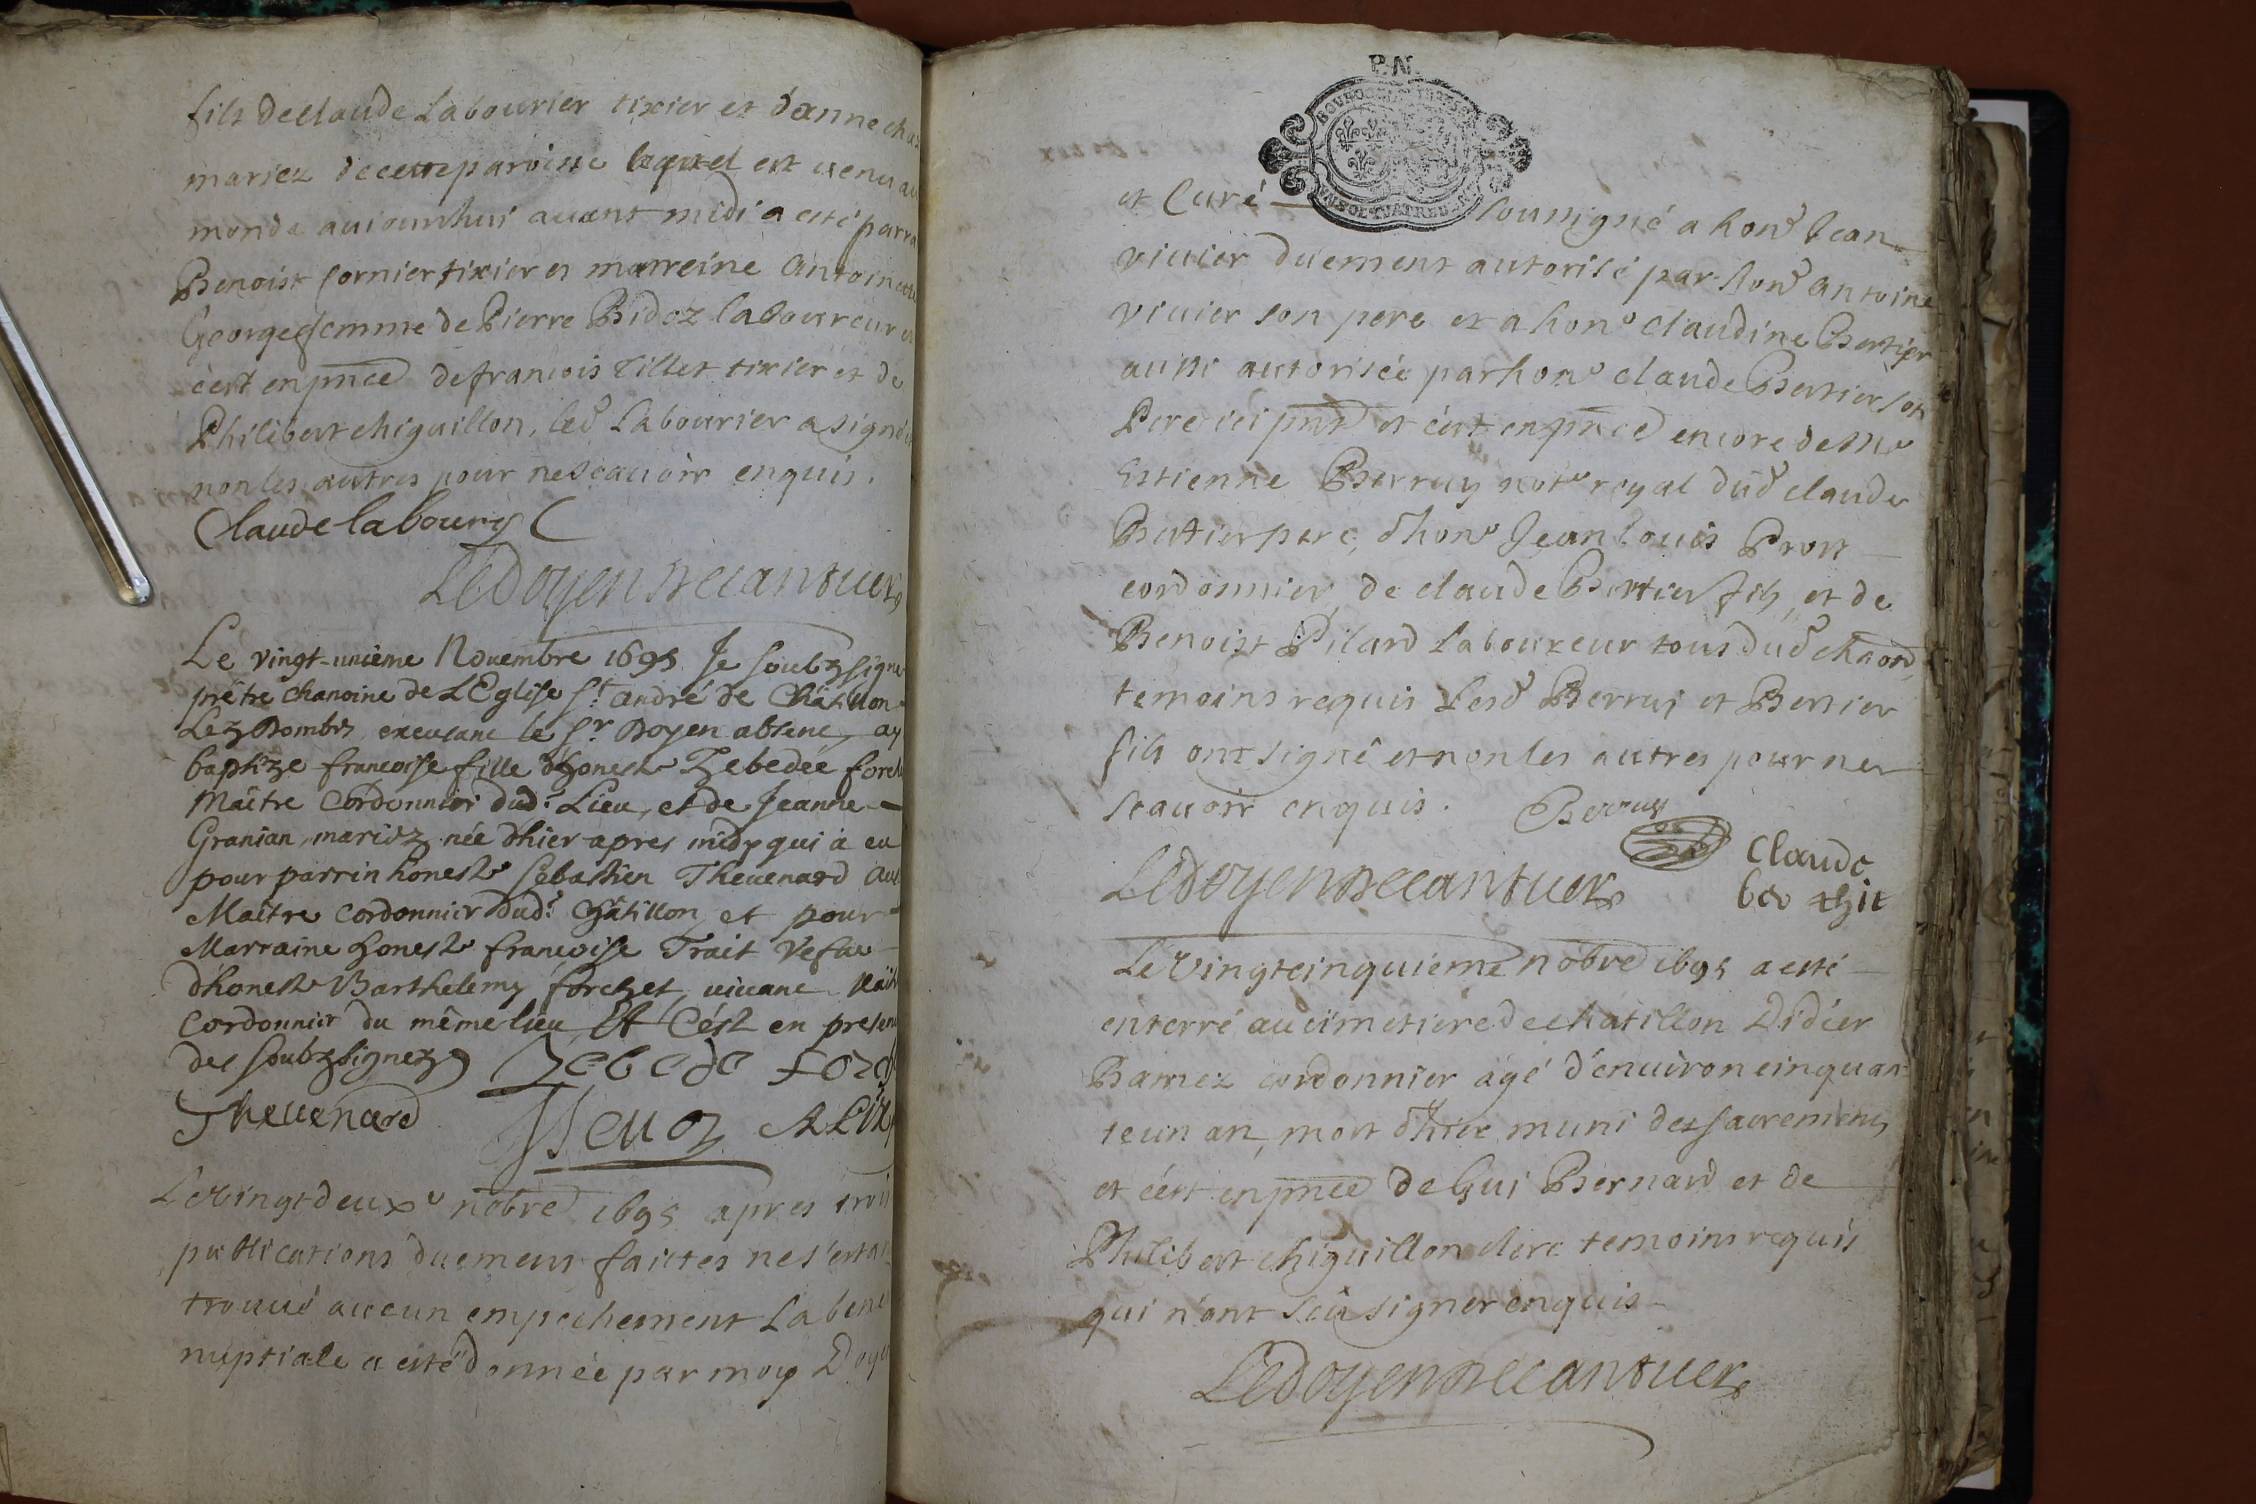 fils de Claude Labourier tixier et d'anne
mariez de cette paroisse lequel est venu au
monde auiourdhui auant midi a esté parra
Benoist Cornier tixier et marreine Antoinette
George femme de Pierre Bidoz laboureur et
c'est en pñce de francois Tillet tixier et de
Philibert chiguillon, led Labourier a signé et
non les autres pour ne scauoir enquis.
Claude laboury
Ledoyen
Le vingt-unième Nouembre 1695 Je soubzsigné
prêtre chanoine de L'Eglise St. andré de Châtillon
Lez Dombes, excusant le Sr Doyen absent, ay
baptize françoise fille d'honeste Zebedée
Maître Cordonnier dud: Lieu, et de Jeanne
Granian, mariez, née d'hier apres midy qui à eu
pour parrin honeste Sebastien Theuenard aussi
Maître cordonnier dud: Châtillon, et pour
Marraine honeste françoise Trait Vefue
d'honeste Barthelemy forchet, viuant Maître
Cordonnier du même lieu, Et C'ést en presen
des soubzsignez Zebede
Theuenard
Le vingt deuxe nõbre 1695 apres trois
publications duement faittes ne s'estant
trouué aucun empechement la bene
nuptiale a esté donnée par moy Doyen
P.N.
et Curé soussigné a hone Jean
viuier duement autorisé par hone antoine
viuier son pere et a hone claudine Bertier
aussi autorisée par hone claude Bertier son
Pere ici pñt et c'est en pñce encore de Me
Estienne Berruy note royal dud claude
Bertier pere, d'hone Jean Louis Prost
cordonnier, de claude Bertier fils, et de
Benoist Pilard laboureur tous dud chaon,
temoins requis Lesd Berruy et Bertier
fils ont signé et non les autres pour ne
scauoir enquis. Berruy
Claude
Ledoyen
ber thie
Le Vingtcinquieme nõbre 1695 a esté
enterré au cimetiere de châtillon Didier
Bamez cordonnier agé d'enuiron cinquan
te un an, mort d'hier muni des sacremens
et c'est en pñce de Gui Bernard et de
Philibert chiguillon clerc temoins requis
qui n'ont sçû signer enquis
Ledoyen